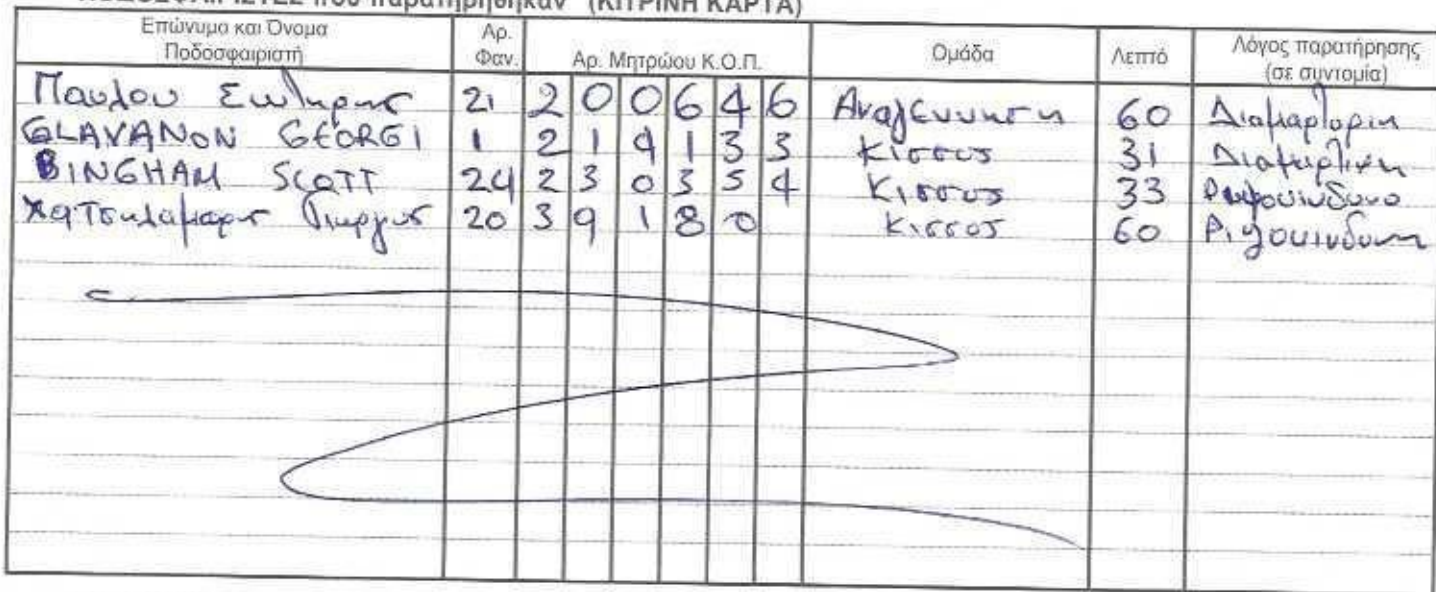 ΠΟΔΟΣΦΑΙΡΙΣΤΕΣ που παρατηρήθηκαν (ΚΙΤΡΙΝΗ ΚΑΡΤΑ)
Επώνυμο και Όνομα Ποδοσφαιριστή Αρ. Φαν. Αρ. Μητρώου Κ.Ο.Π. Ομάδα Λεπτό Λόγος παρατήρησης (σε συντομία)
Παυλου Σωτηρης 21 2 0 0 6 4 6 Αναγεννηση 60 Διαμαρτορια
GLAVANON GEORGI 1 2 1 4 1 3 3 Κισσος 31
BINGHAM SCOTT 24 2 3 0 3 5 4 Κισσος 33
Γιωργος 20 3 9 1 8 0 Κισσος 60